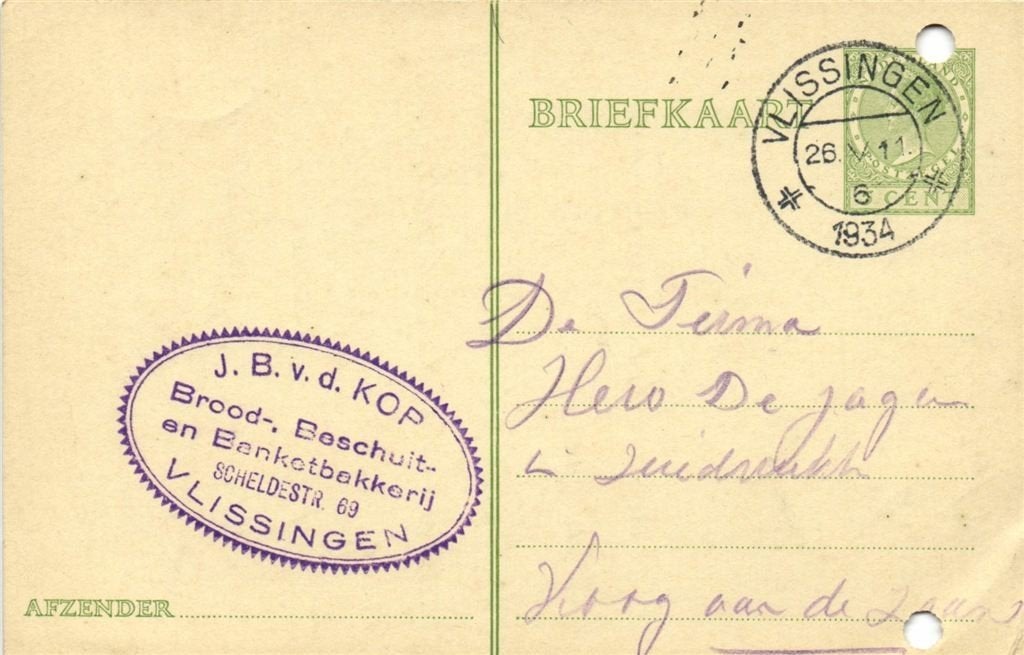 BRIEFKAART
VLISSINGEN
26.V.11.
6
1934
POSTZEGEL
CENT
De Firma
Hero De Jager
Koog aan de Zaan
J. B. v. d. KOP
Brood-, Beschuit-
en Banketbakkerij
SCHELDESTR. 69
VLISSINGEN
AFZENDER